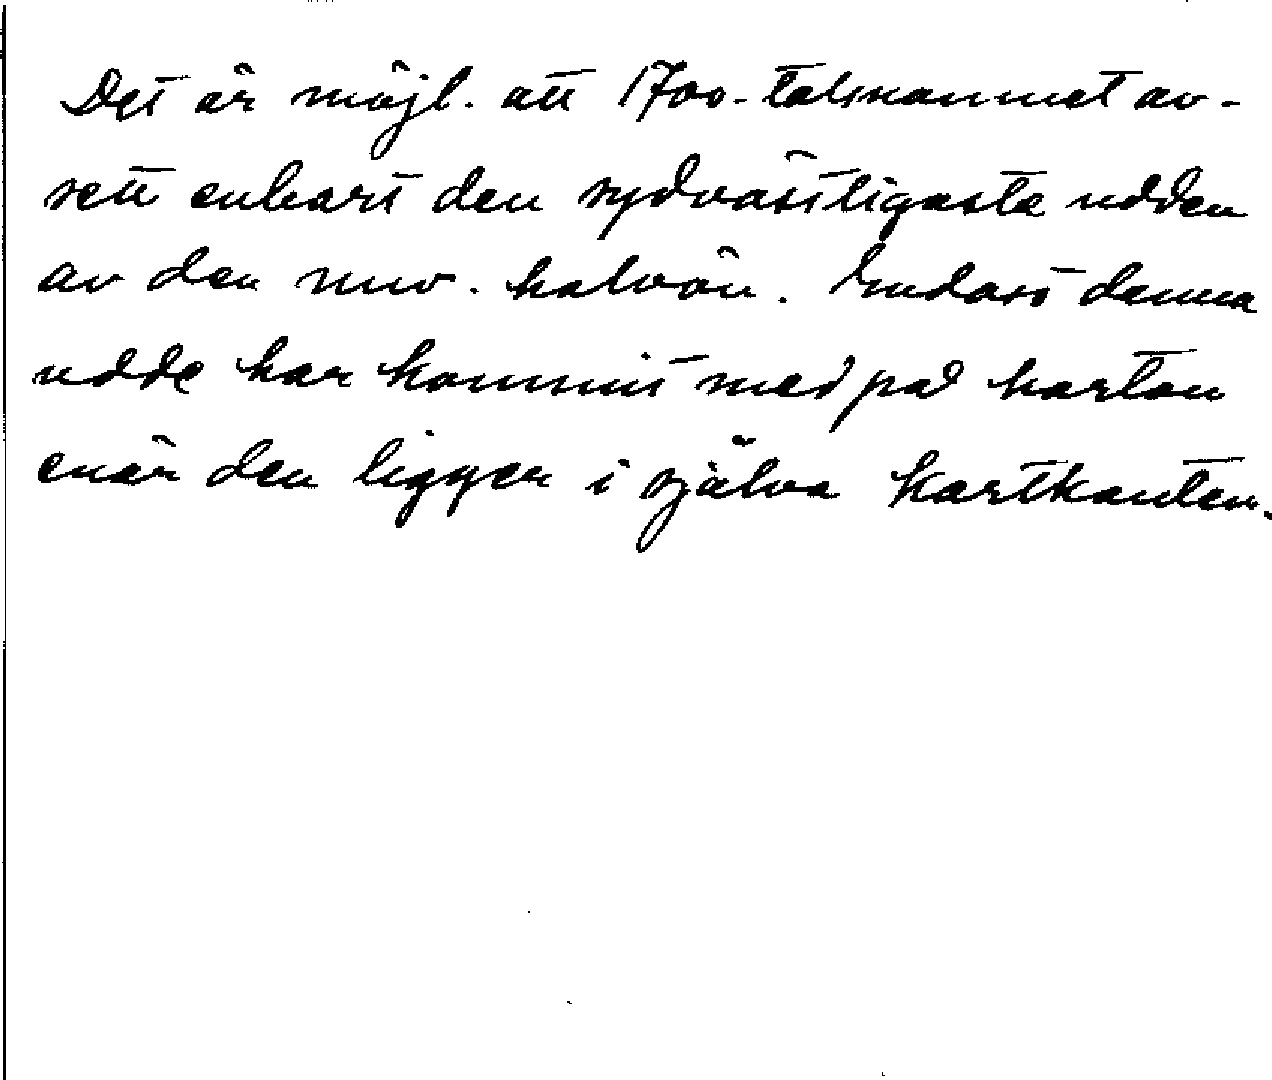 Det är möjl. att 1700-talsnamnet av-
sett enbart den sydvästligaste udden
av den nuv. halvön. Endast denna
udde har kommit med på kartan
enär den ligger i själva kartkanten.